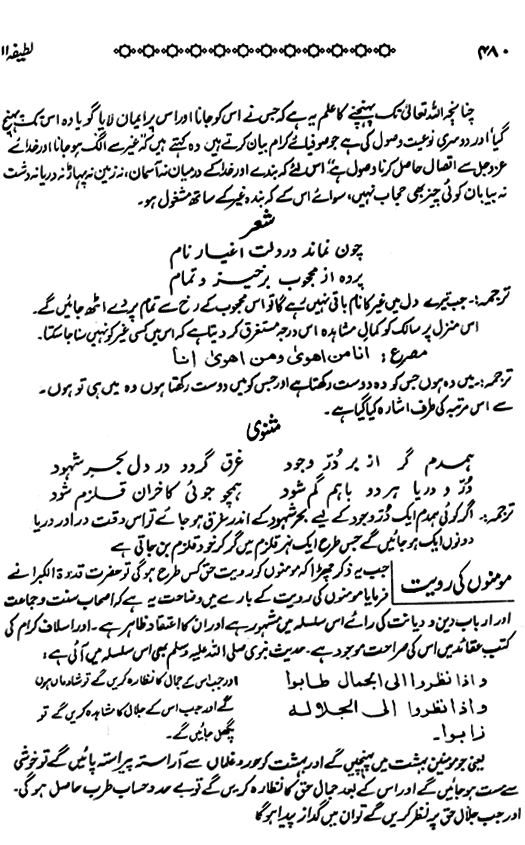 ۴۸۰ لطیفہ ۱۱
چنانچہ اللہ تعالیٰ تک پہنچنے کا علم یہ ہے کہ جس نے اس کو جانا اور اس پر ایمان لایا گویا وہ اس تک پہنچ
گیا اور دوسری نوعیت وصول کی ہے جو صوفیائے کرام بیان کرتے ہیں وہ کہتے ہیں کہ غیر سے الگ ہو جانا اور خدائے
عزوجل سے اتصال حاصل کرنا وصول ہے؛ اس لئے کہ بندے اور خدا کے درمیان نہ آسمان، نہ زمین نہ پہاڑ نہ دریا نہ دشت
نہ بیابان کوئی چیز بھی حجاب نہیں، سوائے اس کے کہ بندہ غیر کے ساتھ مشغول ہو۔
شعر
چون نماند در دلت اغیار نام
پردہ از محبوب برخیزد تمام
ترجمہ:۔ جب تیرے دل میں غیر کا نام باقی نہیں رہے گا تو اس محبوب کے رخ سے تمام پردے اٹھ جائیں گے۔
اس منزل پر سالک کو کمالِ مشاہدہ اس درجہ مستغرق کر دیتا ہے کہ اس میں کسی غیر کو نہیں سنا جا سکتا۔
مصرع: انا من اھویٰ ومن اھویٰ انا
ترجمہ:۔ میں وہ ہوں جس کو وہ دوست رکھتا ہے اور جس کو میں دوست رکھتا ہوں وہ میں ہی تو ہوں۔
سے اس مرتبہ کی طرف اشارہ کیا گیا ہے۔
مثنوی
ہمدم گر از بر دُرّ وجود غرق گردد در دل بحرِ شہود
دُرّ و دریا ہر دو باہم گم شود ہمچو جوئی کاخران قلزم شود
ترجمہ:۔ اگر کوئی ہمدم ایک دُرِّ وجود کے لیے بحرِ شہود کے اندر غرق ہو جائے تو اس وقت در اور دریا
دونوں ایک ہو جائیں گے جس طرح ایک نہر قلزم میں گر کر خود قلزم بن جاتی ہے
مومنوں کی رویت جب یہ ذکر چھڑا کہ مومنوں کو رویت حق کس طرح ہو گی تو حضرت قدوۃ الکبرا نے
فرمایا مومنوں کی رویت کے بارے میں وضاحت یہ ہے کہ اصحاب سنت و جماعت
اور ارباب دین و دیانت کی رائے اس سلسلہ میں مشہور ہے اور ان کا اعتقاد ظاہر ہے۔ اور اسلاف کرام کی
کتب عقائد میں اس کی صراحت موجود ہے۔ حدیث نبوی صلی اللہ علیہ وسلم بھی اس سلسلہ میں آئی ہے:
واذا نظروا الی الجمال طابوا اور جب اس کے جمال کا نظارہ کریں گے تو شادماں ہوں
واذا نظروا الی الجلالہ گے اور جب اس کے جلال کا مشاہدہ کریں گے تو
ذابوا۔ پگھل جائیں گے۔
یعنی جو مومنین بہشت میں پہنچیں گے اور بہشت کو حور و غلماں سے آراستہ پیراستہ پائیں گے تو خوشی
سے مست ہو جائیں گے اور اس کے بعد جمال حق کا نظارہ کریں گے تو بے حد و حساب طرب حاصل ہو گی۔
اور جب جلال حق پر نظر کریں گے تو ان میں گداز پیدا ہو گا